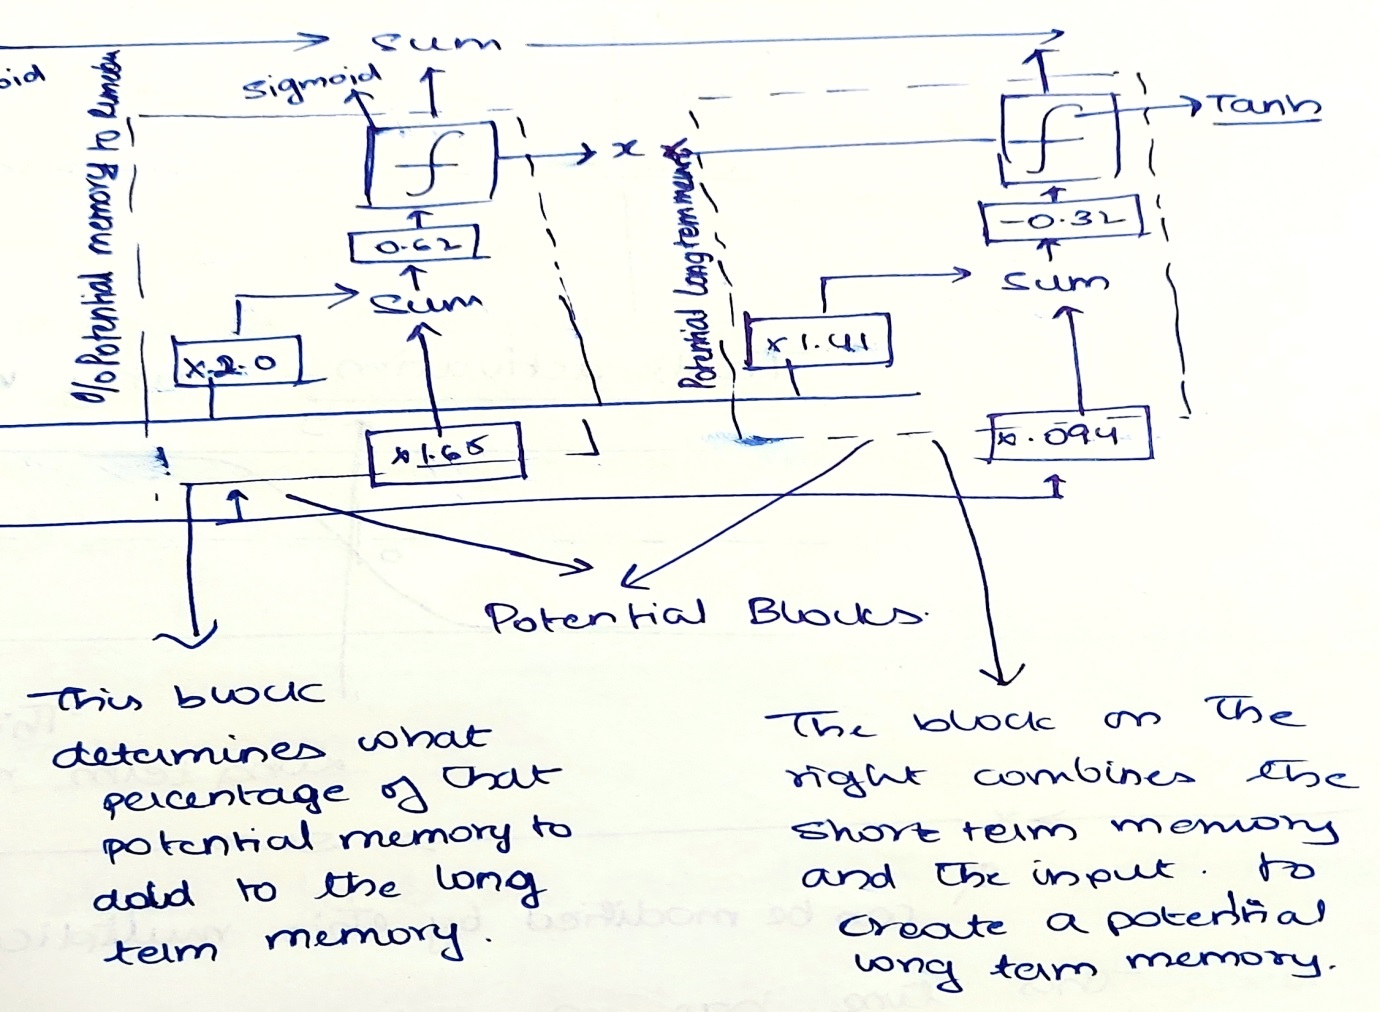 sum
oid
sigmoid
Tanh
x
x
% Potential memory to Remember
Potential Long term memory
0.62
-0.32
sum
sum
x 2.0
x 1.41
x 1.65
x .094
0
Potential Blocks.
This block
determines what
percentage of that
potential memory to
add to the long
term memory.
The block on the
right combines the
short term memory
and the input. to
create a potential
long term memory.